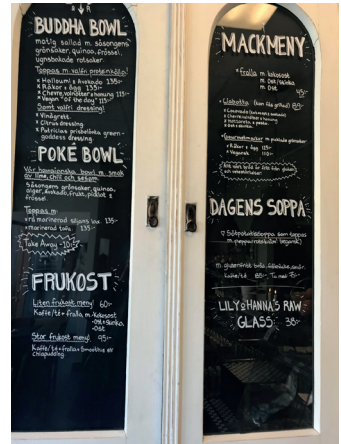 BUDDHA BOWL
matig sallad m. säsongens
grönsaker, quinoa, frössel,
ugnsbakade rotsaker.
Toppas m. valfri proteinkälla!
x Halloumi & Avokado 135:-
x Räkor & ägg 135:-
x Chevre, valnötter & honung 115:-
x Vegan "Of the day" 115:-
Samt valfri dressing!
x Vinägrett
x Citrusdressing
x Patricias prisbelönta green-
goddess dressing.
POKÉ BOWL
Vår hawaiianska bowl m. smak
av lime, chili och sesam.
Säsongens grönsaker, quinoa,
alger, avokado, frukt, picklat &
frössel.
Toppas m.
x rå marinerad salma lax 135:-
x marinerad tofu 135:-
Take Away -10:-
FRUKOST
Liten frukost meny! 60:-
Kaffe/té + fralla m. • kokosost
• Ost & skinka
• Ost
Stor frukost meny! 95:-
Kaffe/té + fralla + Smoothie el.
chiapudding.
MACKMENY
x Fralla m. kokosost
m. Ost/skinka
m. Ost
45:-
x Ciabatta (kan fås grillad) 89:-
x Chevre, valnötter & honung
x Mozzarella & pesto
x Ost & skinka
x Gourmetmackor m. picklade grönsaker
x Räkor & ägg 115:-
x Vegansk 110:-
Allt vårt bröd är fritt från gluten
DAGENS SOPPA
Sötpotatissoppa som toppas
m. glutenfritt bröd, smör.
Kaffe/té
LILY & HANNA'S RAW
GLASS 38:-